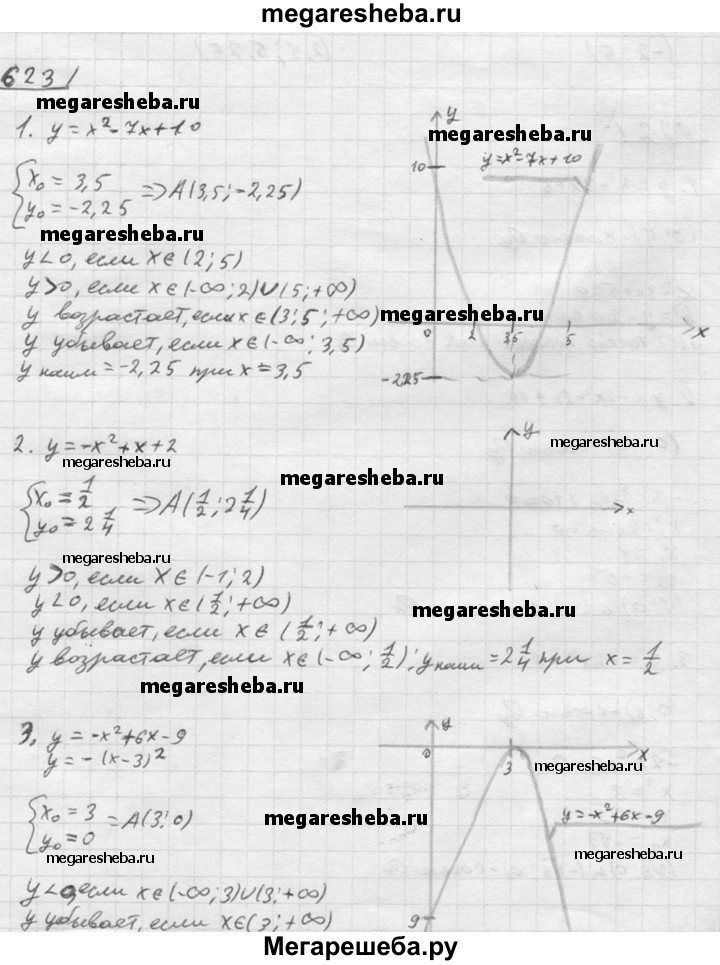 megaresheba.ru
623/
megaresheba.ru
1. y = x² - 7x + 10
megaresheba.ru
y
y=x²-7x+10
10
{x₀ = 3,5
y₀ = -2,25 => A(3,5; -2,25)
megaresheba.ru
y<0, если x∈(2;5)
y>0, если x∈(-∞;2)∪(5;+∞)
y возрастает, если x∈(3;5;+∞)
megaresheba.ru
0 2 3,5 5 x
y убывает, если x∈(-∞;3,5)
y наим = -2,25 при x = 3,5
-2,25
2. y = -x² + x + 2
y
megaresheba.ru
megaresheba.ru
megaresheba.ru
{x₀ = 1/2
y₀ = 2 1/4 => A(1/2; 2 1/4)
x
megaresheba.ru
megaresheba.ru
y>0, если x∈(-1;2)
y<0, если x∈(1/2;+∞)
megaresheba.ru
y убывает, если x∈(1/2;+∞)
y возрастает, если x∈(-∞;1/2); y наим = 2 1/4 при x = 1/2
megaresheba.ru
3. y = -x² + 6x - 9
y = -(x-3)²
y
0 3 x
megaresheba.ru
megaresheba.ru
{x₀ = 3
y₀ = 0 = A(3;0)
megaresheba.ru
y=-x²+6x-9
megaresheba.ru
megaresheba.ru
y<0, если x∈(-∞;3)∪(3;+∞)
y убывает, если x∈(3;+∞)
9
Мегарешеба.ру